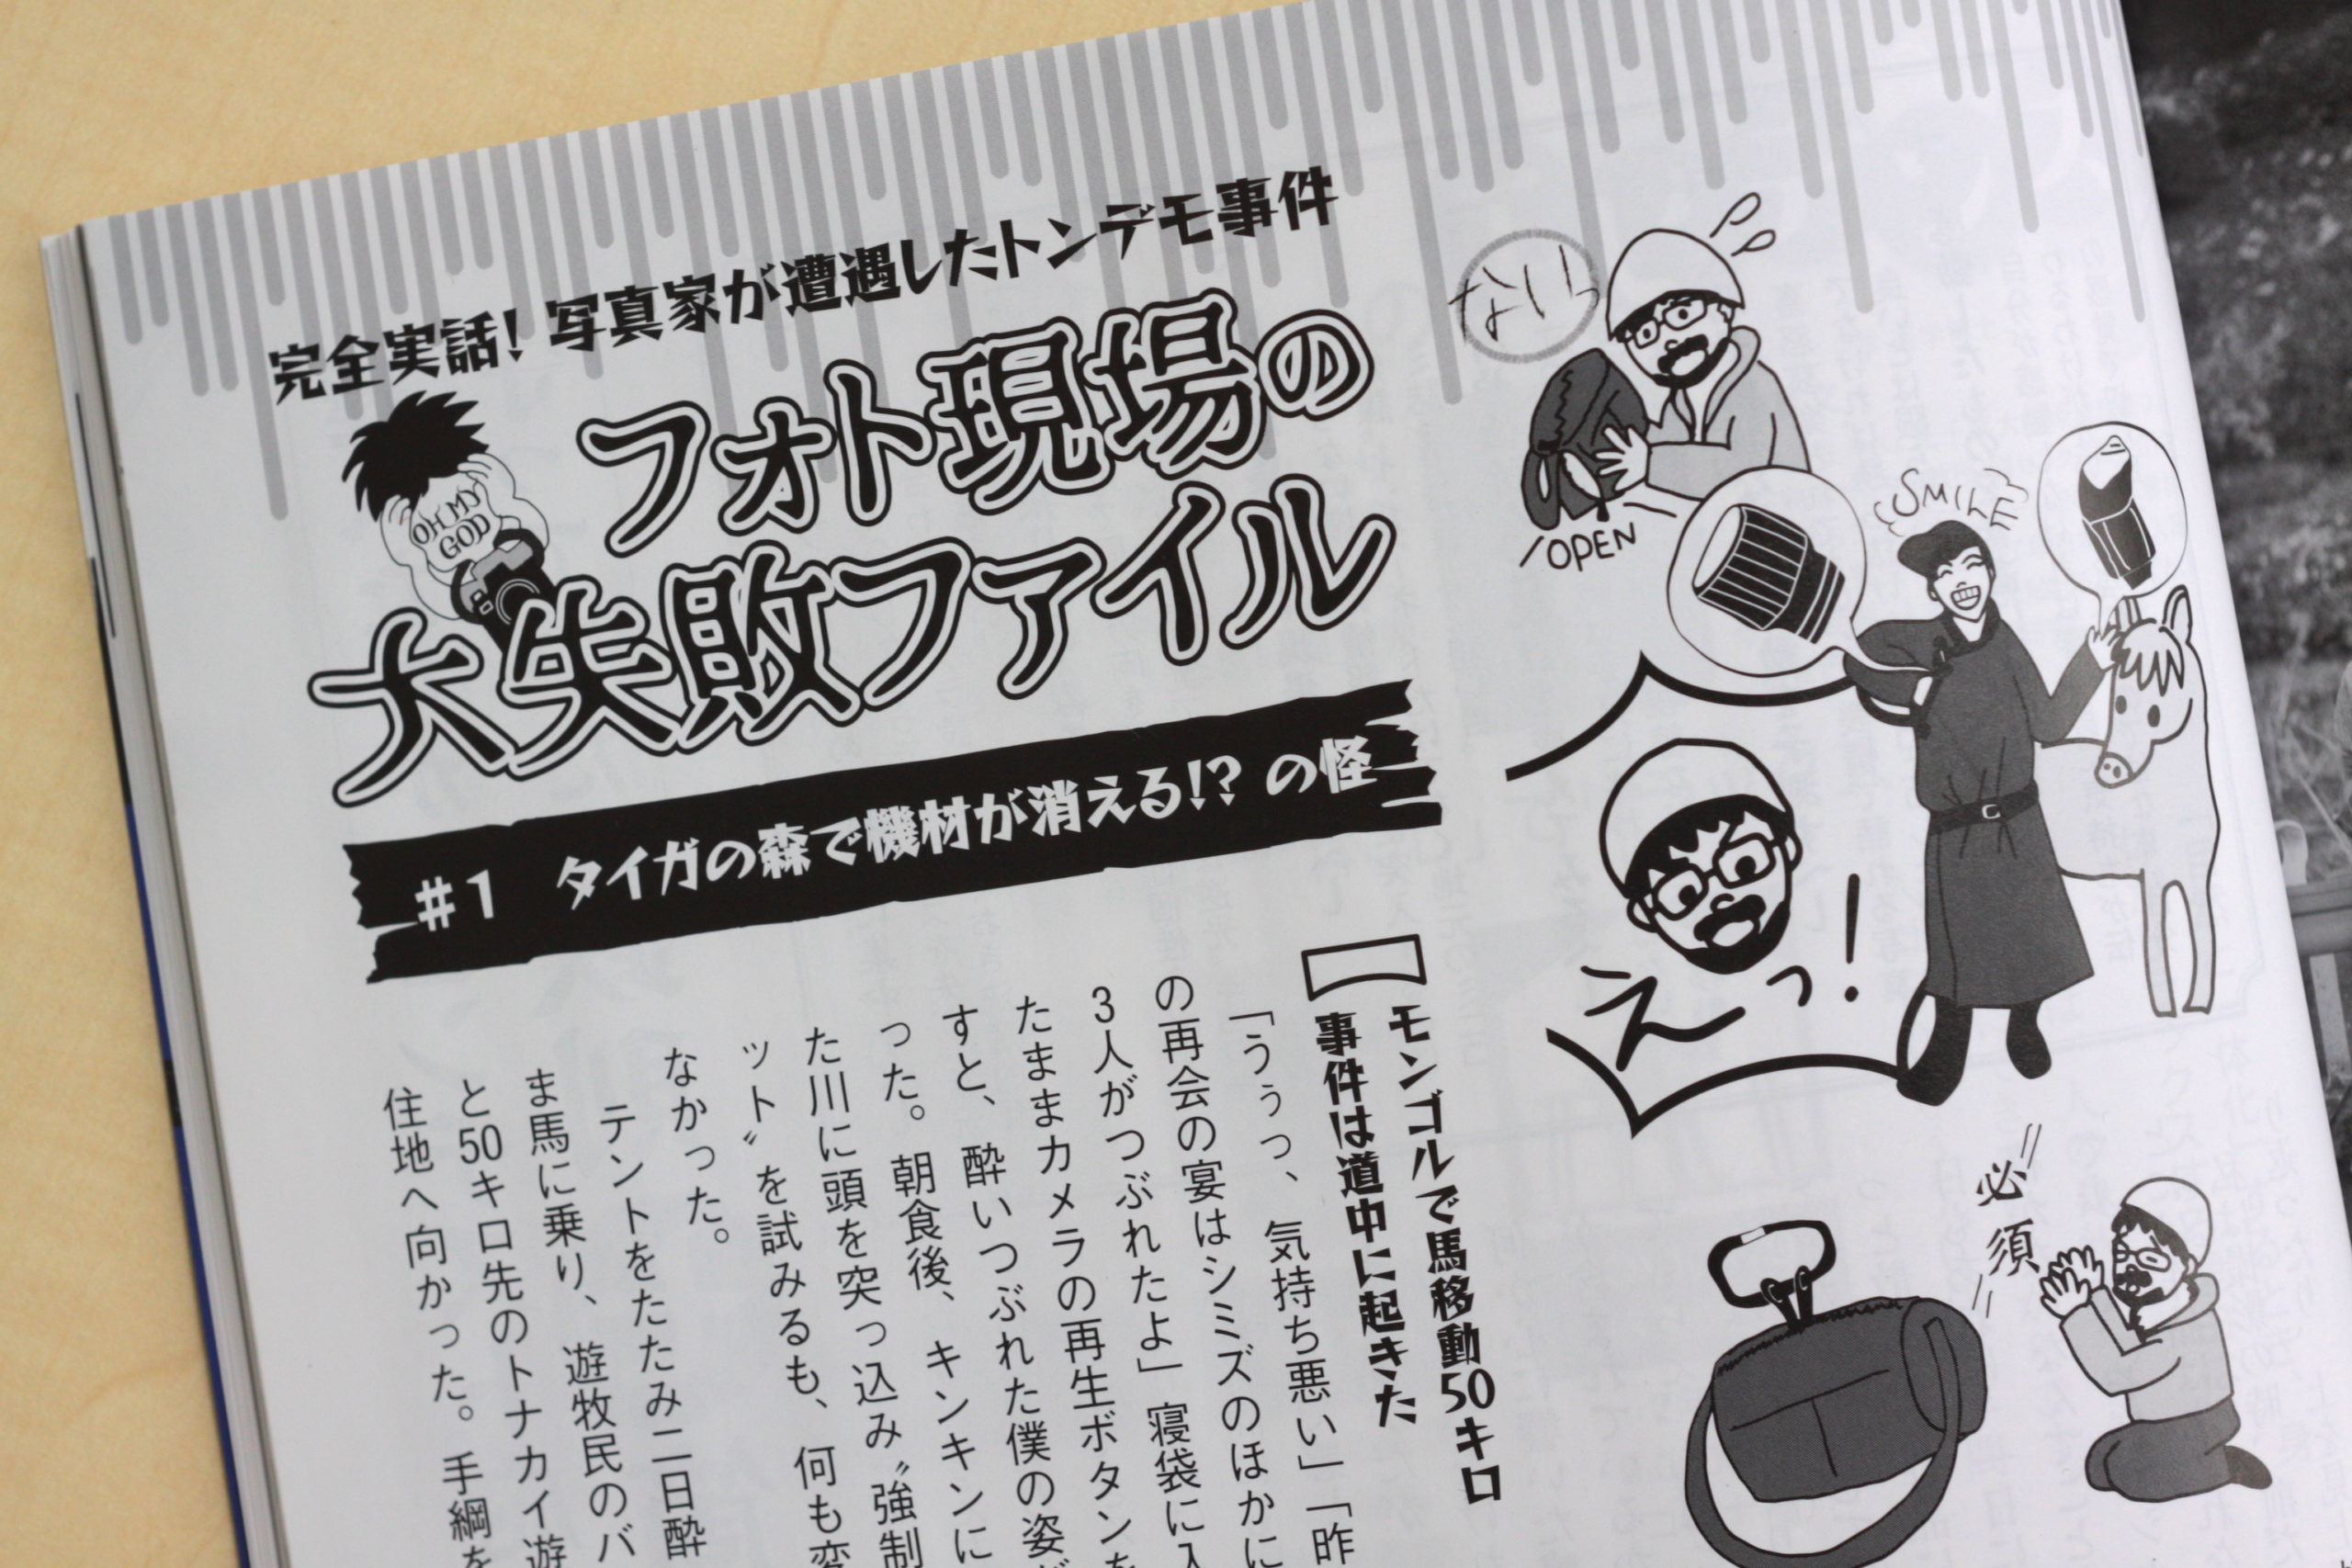 完全実話！ 写真家が遭遇したトンデモ事件
OH MY
GOD
フォト現場の
大失敗ファイル
＃1　タイガの森で機材が消える!? の怪
ない
OPEN
SMILE
えっ！
必須
モンゴルで馬移動50キロ
事件は道中に起きた
「うぅっ、気持ち悪い」「昨
の再会の宴はシミズのほかに
3人がつぶれたよ」寝袋に入
たままカメラの再生ボタンを
すと、酔いつぶれた僕の姿が
った。朝食後、キンキンに
た川に頭を突っ込み〝強制
ット〟を試みるも、何も変
なかった。
テントをたたみ二日酔
ま馬に乗り、遊牧民のバ
と50キロ先のトナカイ遊
住地へ向かった。手綱を